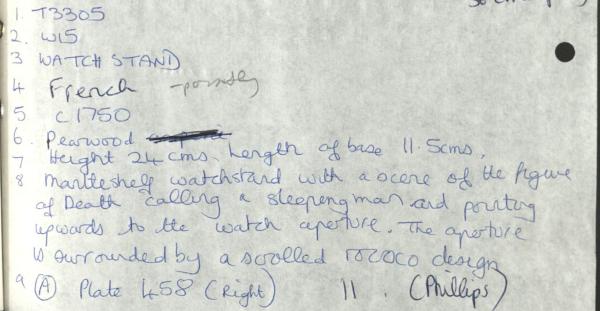 1. T3305
2. W15
3 WATCH STAND
4 French - possibly
5 c 1750
6. Pearwood
7 Height 24 cms. Length of base 11.5cms.
8 Mantleshelf watchstand with a scene of the figure
of Death calling a sleeping man and pointing
upwards to the watch aperture. The aperture
is surrounded by a scrolled rococo design
9 (A) Plate 458 (Right) 11 . (Phillips)